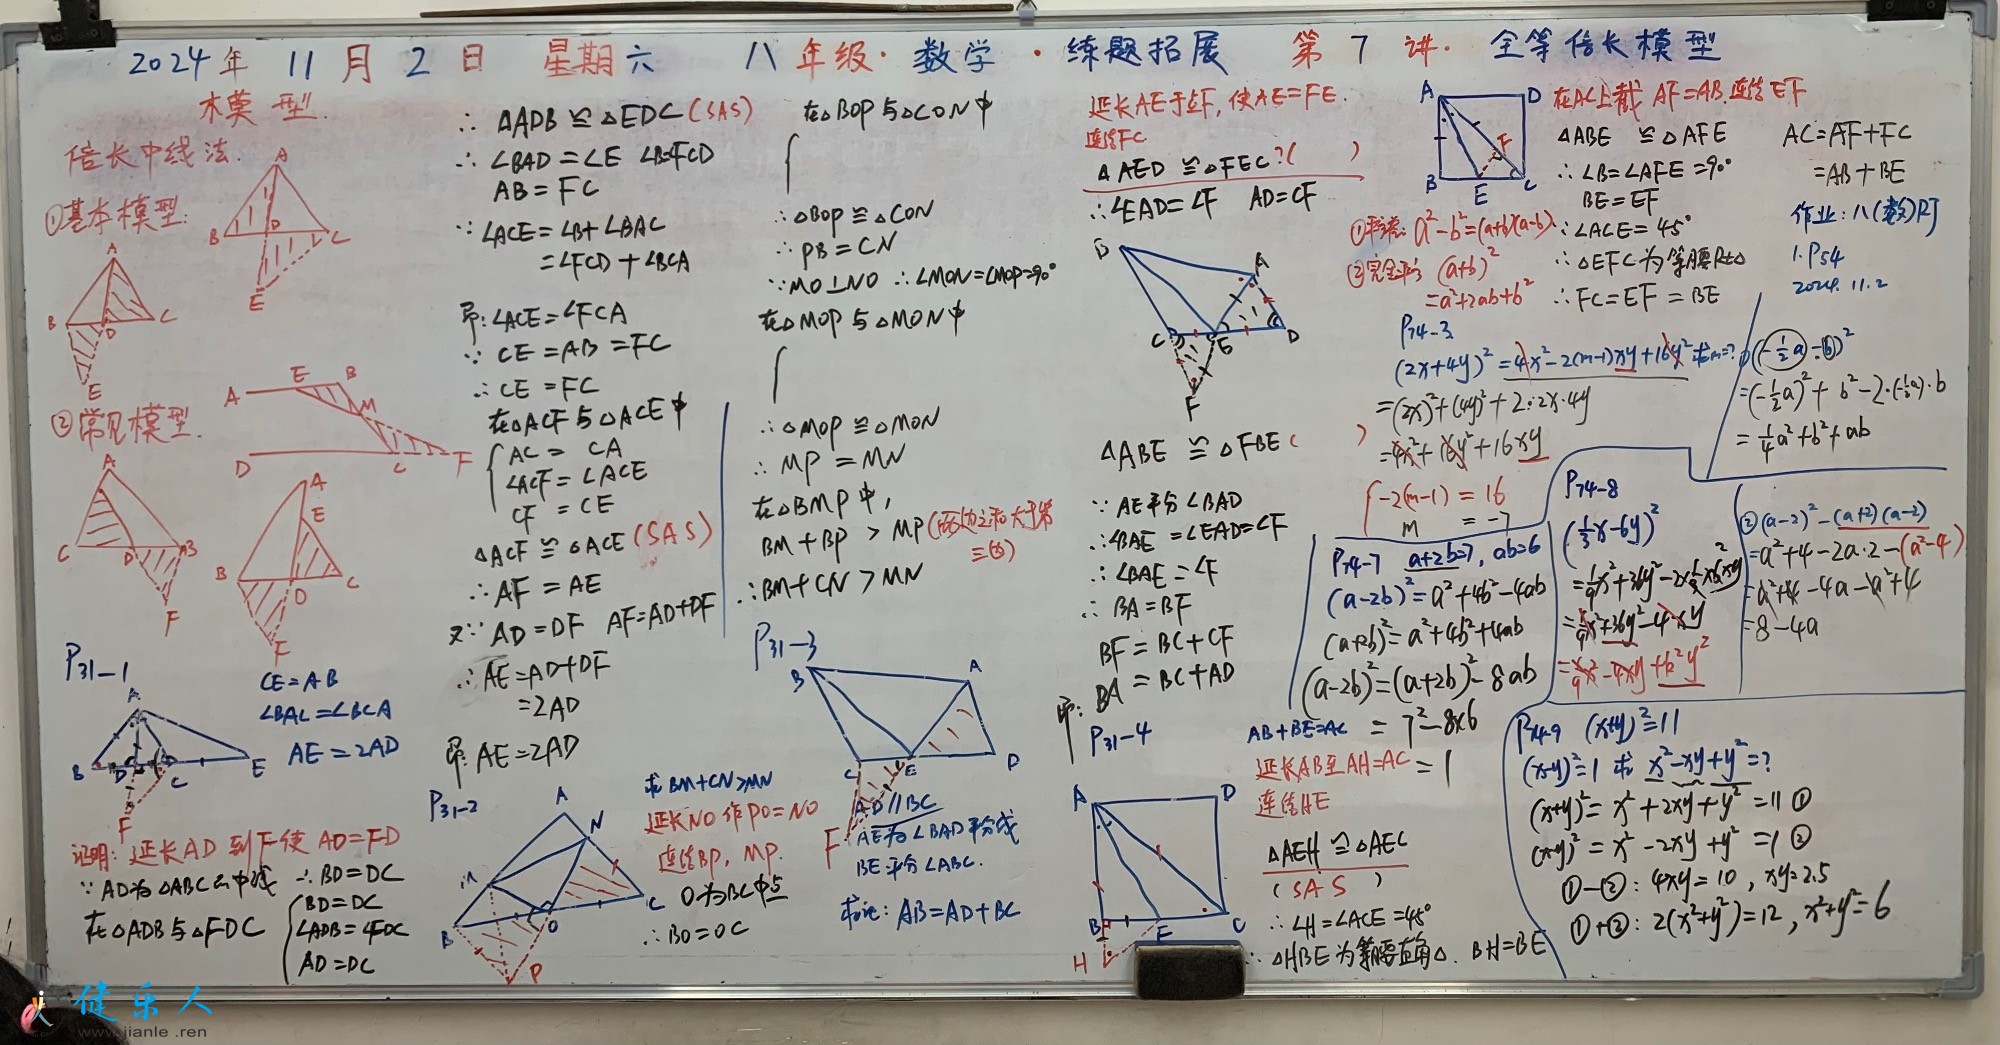 2024年 11月 2日 星期六 八年级·数学·练题拓展 第7讲·全等倍长模型
木模型.
倍长中线法.
①基本模型:
A
B
D
C
E
A
B
D
C
E
②常见模型.
A
E
B
M
D
C
F
A
C
D
B
F
A
E
B
D
C
F
P31-1
CE=AB
∠BAC=∠BCA
AE=2AD
A
B
D
C
E
F
证明: 延长AD到F使AD=FD
∵AD为△ABC的中线 ∴BD=DC
在△ADB与△FDC
BD=DC
∠ADB=∠FDC
AD=DC
∴ △ADB≌△EDC(SAS)
∴ ∠BAD=∠E ∠B=∠FCD
AB=FC
∵∠ACE=∠B+∠BAC
=∠FCD+∠BCA
即:∠ACE=∠FCA
∵ CE=AB=FC
∴CE=FC
在△ACF与△ACE中
AC=CA
∠ACF=∠ACE
CF=CE
△ACF≌△ACE(SAS)
∴AF=AE
又∵AD=DF AF=AD+DF
∴AE=AD+DF
=2AD
即:AE=2AD
P31-2
A
M
N
B
O
C
P
求BM+CN>MN
延长NO作PO=NO
连结BP, MP.
O为BC中点
∴BO=OC
在△BOP与△CON中
∴△BOP≌△CON
∴PB=CN
∵MO⊥NO ∴∠MON=∠MOP=90°
在△MOP与△MON中
∴△MOP≌△MON
∴ MP=MN
在△BMP中,
BM+BP>MP(两边之和大于第三边)
∴BM+CN>MN
P31-3
B
A
C
E
D
F
AD//BC
AE为∠BAD平分线
BE平分∠ABC.
求证: AB=AD+BC
延长AE于点F, 使AE=FE.
连结FC
△AED≌△FEC?( )
∴∠EAD=∠F AD=CF
B
A
C
E
D
F
△ABE≌△FBE( )
∵ AE平分∠BAD
∴∠BAE=∠EAD=∠F
∴∠BAE=∠F
∴ BA=BF
BF=BC+CF
即: BA=BC+AD
P31-4
AB+BE=AC
延长AB至AH=AC
连结HE
△AEH≌△AEC
(SAS)
∴∠H=∠ACE=45°
∴△HBE为等腰直角△. BH=BE
A
D
B
E
C
H
A
D
F
B
E
C
在AC上截AF=AB.连结EF
△ABE≌△AFE
∴∠B=∠AFE=90°
BE=EF
∴∠ACE=45°
∴△EFC为等腰Rt△
∴FC=EF=BE
AC=AF+FC
=AB+BE
作业:八(数)RJ
1.P54
2024.11.2
①平方差: a²-b²=(a+b)(a-b).
②完全平方 (a+b)²
=a²+2ab+b²
P74-3
(2x+4y)²=4x²-2(m-1)xy+16y² 求m=?
=(2x)²+(4y)²+2·2x·4y
=4x²+16y²+16xy
-2(m-1)=16
m=-7
P74-7 a+2b=7, ab=6
(a-2b)²=a²+4b²-4ab
(a+2b)²=a²+4b²+4ab
(a-2b)²=(a+2b)²-8ab
=7²-8×6
=1
P74-8
(1/3x-6y)²
=1/9x²+36y²-2×1/3x×6y
=1/9x²+36y²-4xy
=1/9x²-4xy+6²y²
①(-1/2a-b)²
=(-1/2a)²+b²-2·(-1/2a)·b
=1/4a²+b²+ab
②(a-2)²-(a+2)(a-2)
=a²+4-2a·2-(a²-4)
=a²+4-4a-a²+4
=8-4a
P74-9 (x+y)²=11
(x-y)²=1 求x²-xy+y²=?
(x+y)²=x²+2xy+y²=11①
(x-y)²=x²-2xy+y²=1②
①-②: 4xy=10, xy=2.5
①+②: 2(x²+y²)=12, x²+y²=6
健乐人
www.jianle.ren